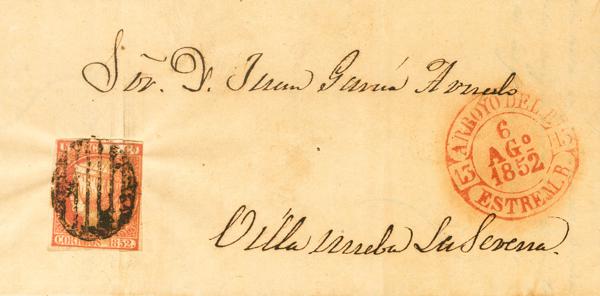 Sñr. D. Juan García Arnedo
ARROYO DEL P.
6
AGº
1852
13
13
ESTREM. B.
CORREOS 1852.
Villanueba La Serena.